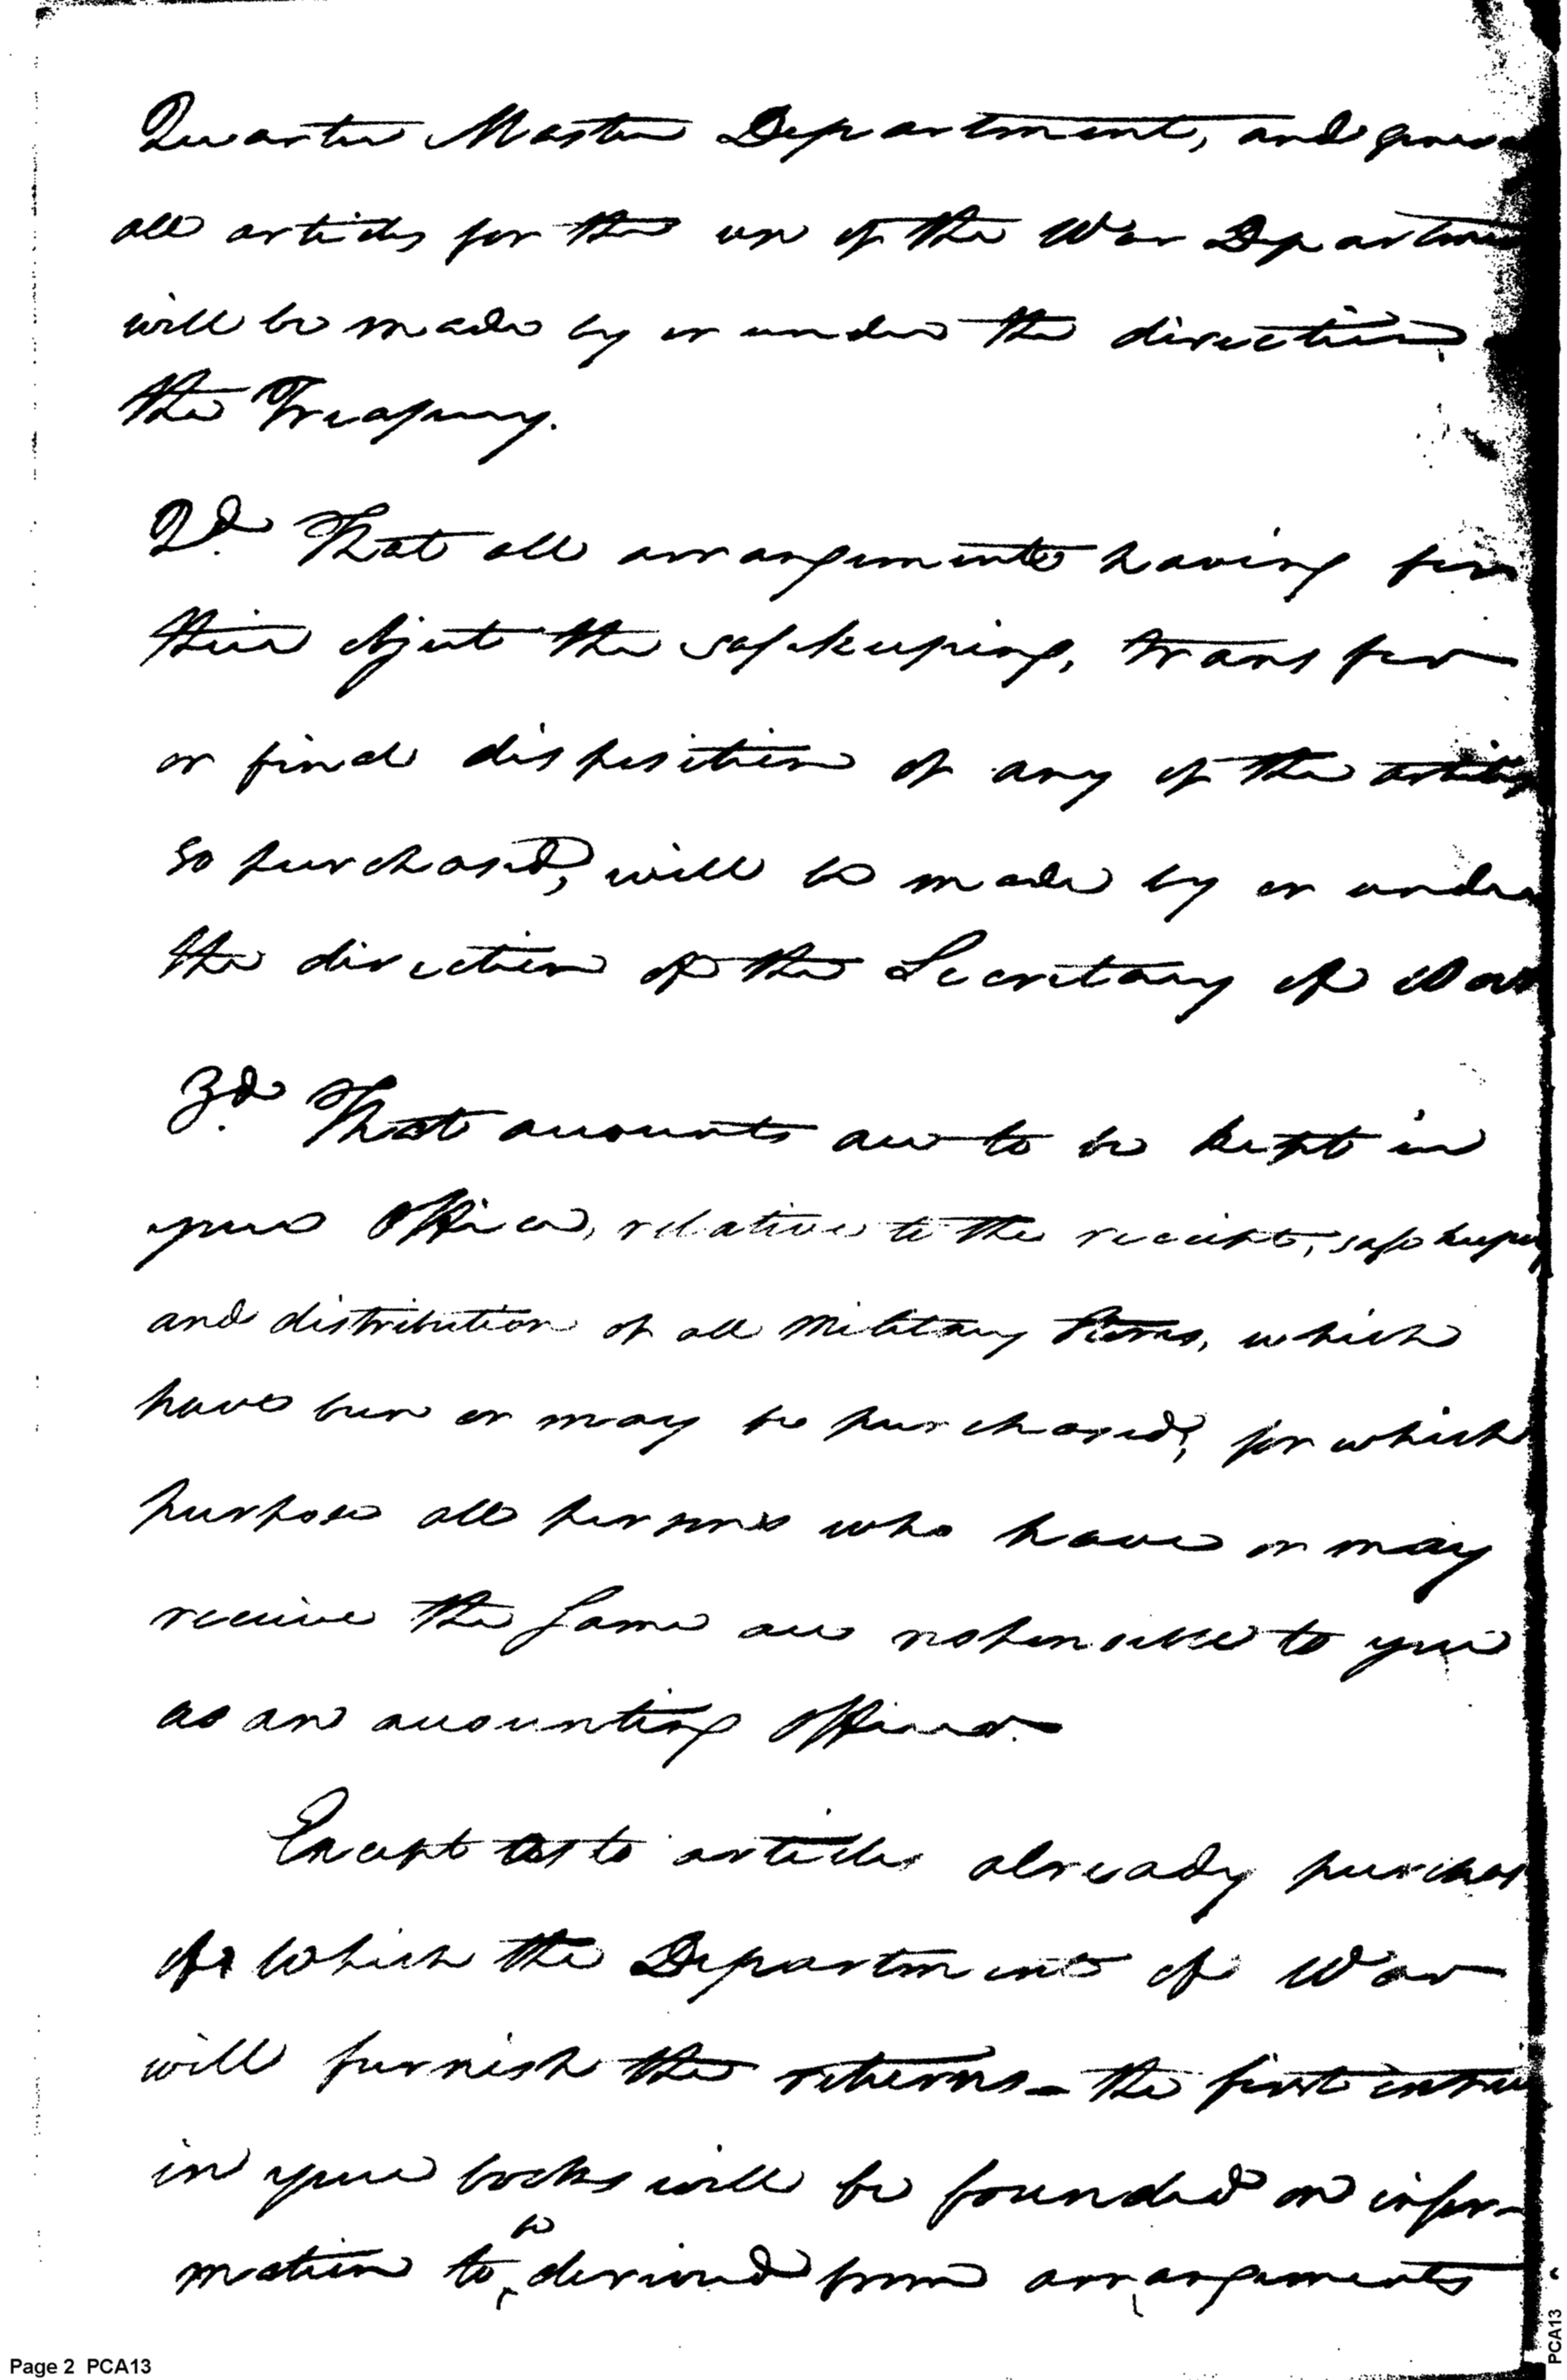 Quarter Master Department, and
all articles for the use of the War Departme
will be made by or under the direction
the Treasury.
2d. That all arrangements having for
their object the safekeeping, transfer
or final disposition of any of the articles
so purchased, will be made by or under
the direction of the Secretary of War
3d. That accounts are to be kept in
your Office, relative to the receipt, safe keeping
and distribution of all Military Stores, which
have been or may be purchased, for which
purpose all persons who have or may
receive the same are responsible to you
as an accounting Officer.
Except as to articles already purchas
of which the Department of War
will furnish the returns - the first entries
in your books will be founded on infor-
mation to be derived from arrangements
Page 2 PCA13
PCA13